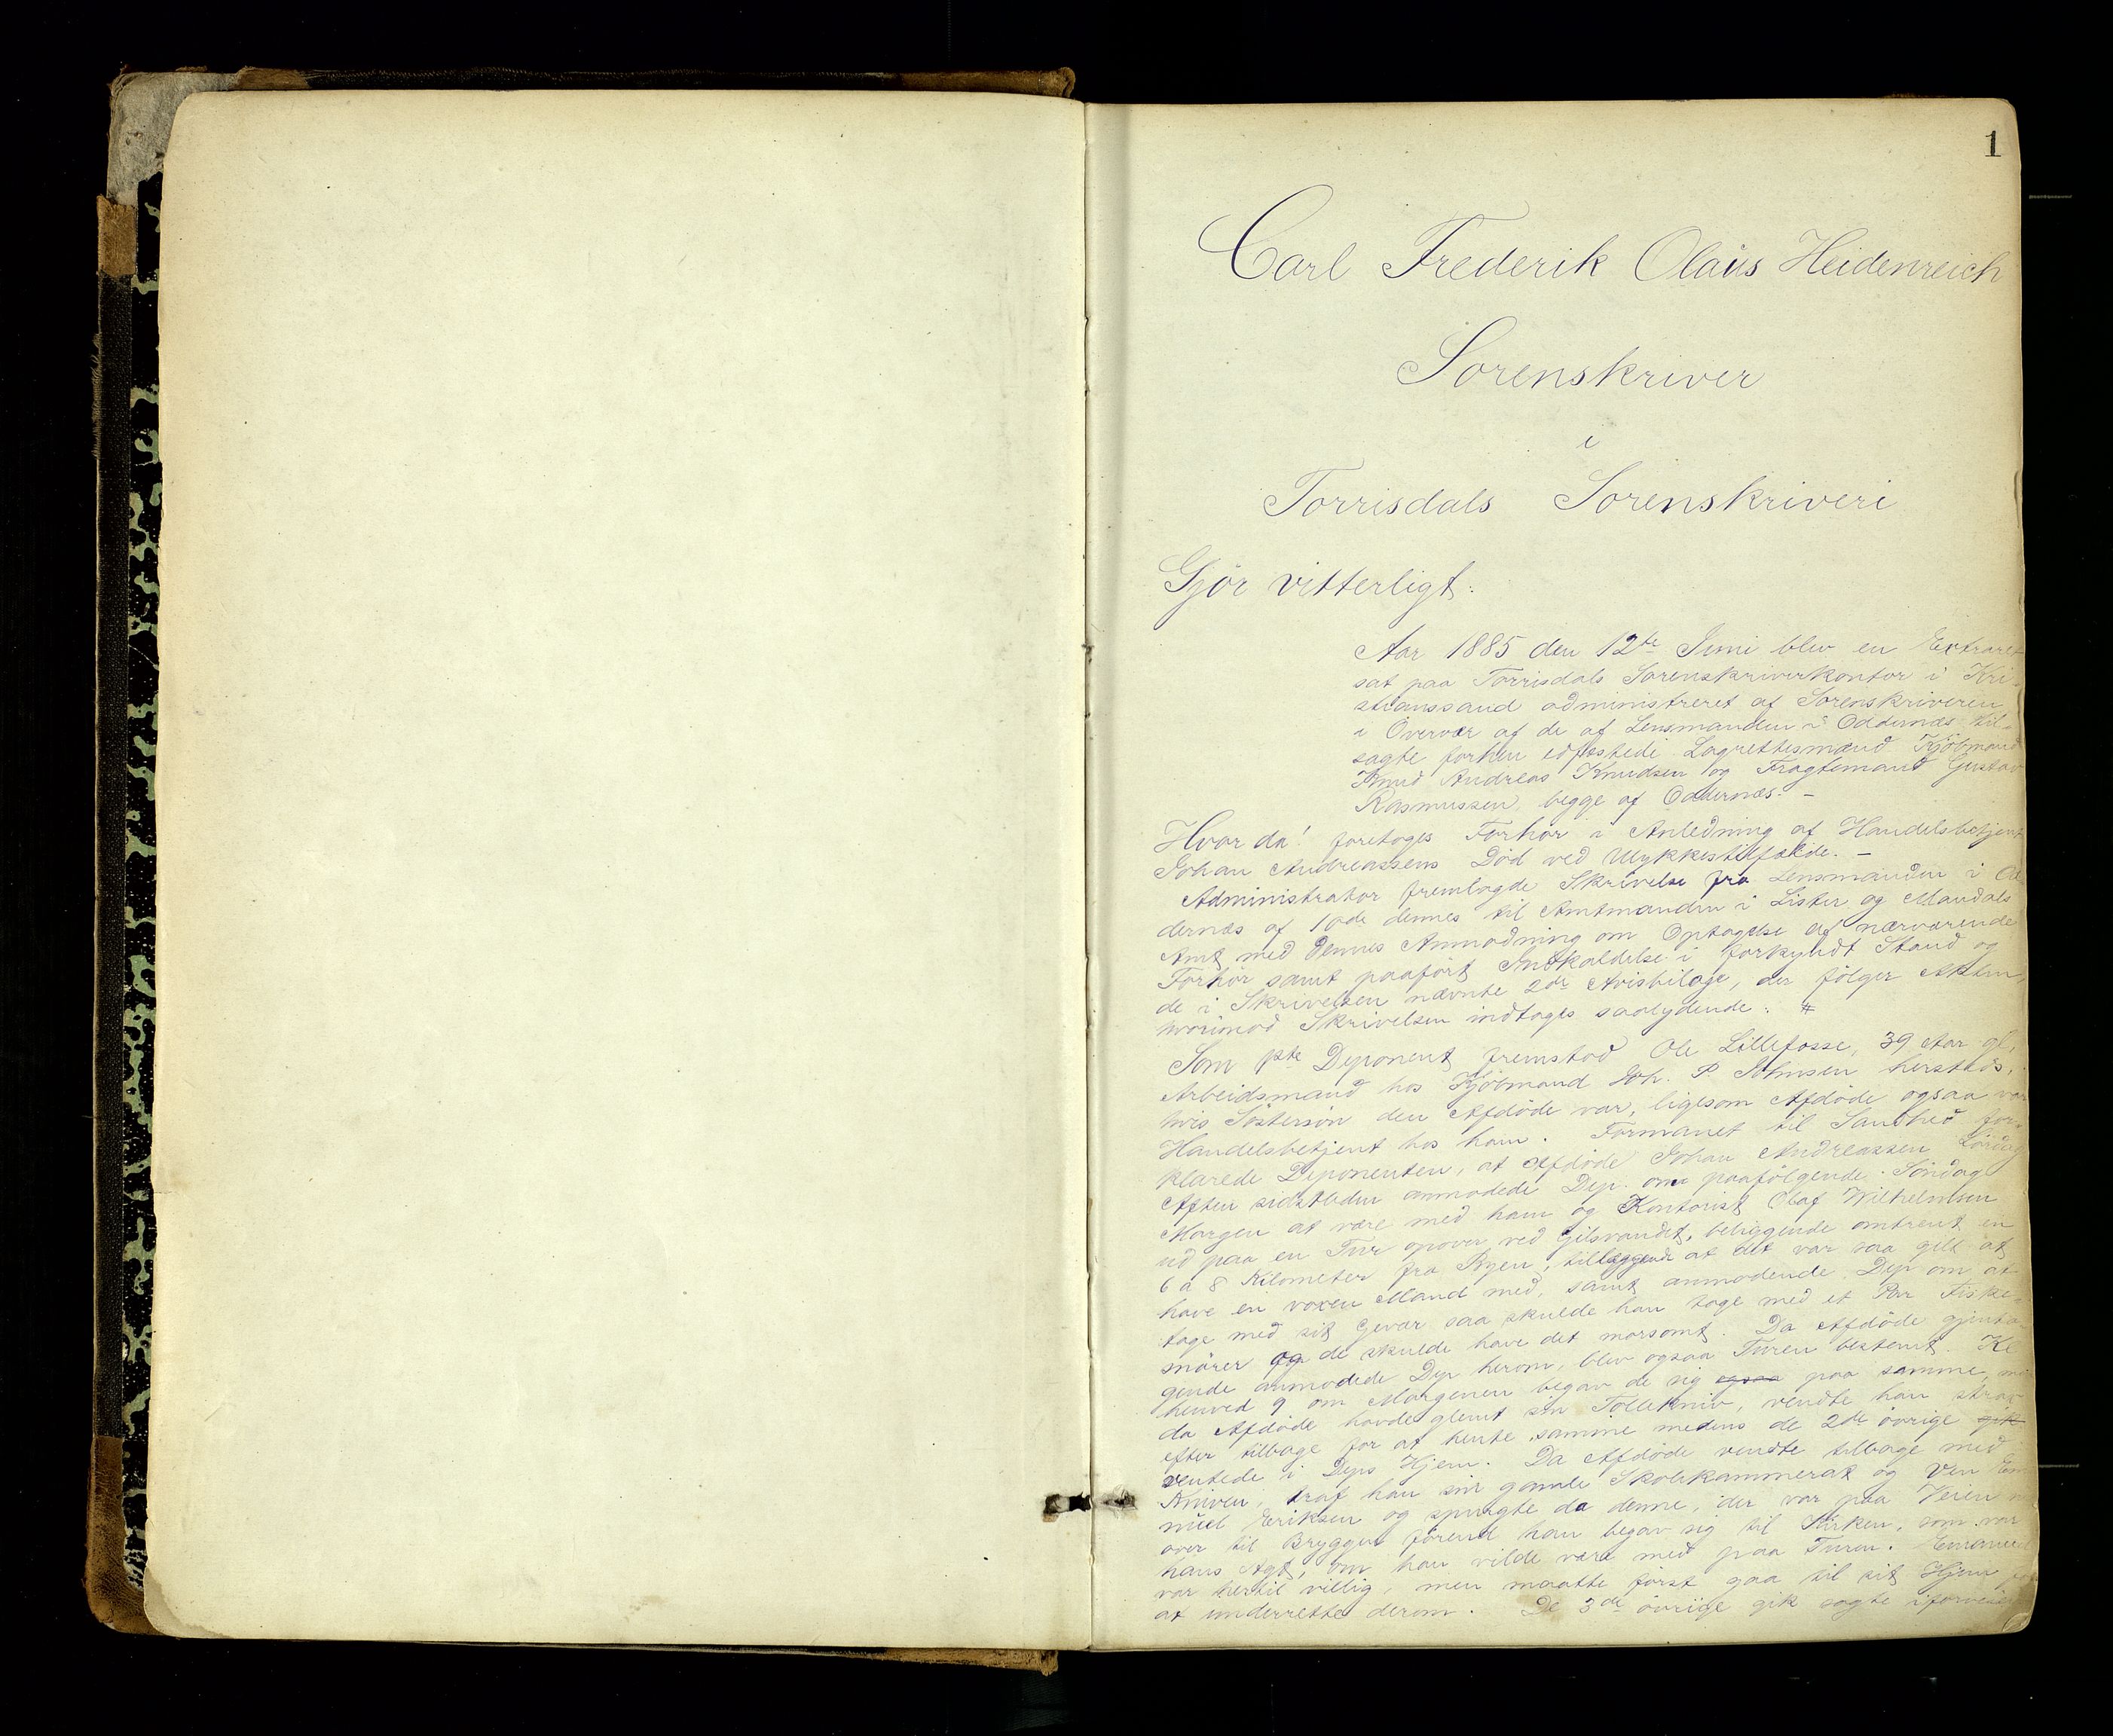 1
Carl Frederik Olaüs Heidenreich
Sorenskriver
i
Torrisdals Sorenskriveri
Gjör vitterligt:
Aar 1885 den 12te Juni blev en Extraret
sat paa Torrisdals Sorenskriverkontor i Kri-
stianssand administreret af Sorenskriveren
i Overvær af de af Lensmanden i Oddernæs til-
sagte forhen edfæstede Lagrettesmænd Kjöbmand
Knud Andreas Knudsen og Fragtemand Gustav
Rasmussen, begge af Oddernæs. –
Hvor da! foretoges Forhör i Anledning af Handelsbetjent
Johan Andreassens Död ved Ulykkestilfælde. –
Administrator fremlagde Skrivelse fra Lensmanden i Od-
dernæs af 10de dennes til Amtmanden i Lister og Mandals
Amt med Dennes Anmodning om Optagelse af nærværende
Forhör samt paafört Indkaldelse i forkyndt Stand og
de i Skrivelsen nævnte 2de Avisbilage, der fölger Akten,
hvorimod Skrivelsen indtages saalydende: #
Som 1ste Deponent fremstod Ole Lillefosse, 39 Aar gl.,
Arbeidsmand hos Kjöbmand Joh. P. Johnsen hersteds,
hvis Söstersön den Afdöde var, ligesom Afdöde ogsaa var
Handelsbetjent hos ham. Formanet til Sandhed for-
klarede Deponenten, at Afdöde Johan Andreassen Lördag
Aften sidstleden anmodede Dep. om paafölgende Söndag
Morgen at være med ham og Kontorist Olaf Wilhelmsen
ud paa en Tur opover ved Gilsvandet, beliggende omtrent en
6 à 8 Kilometer fra Byen, tillæggende at det var saa gilt at
have en voxen Mand med, samt anmodende Dep om at
tage med sit Gevær saa skulde han tage med et Par Fiske-
snörer og de skulde have det morsomt. Da Afdöde gjenta-
gende anmodede Dep herom, blev ogsaa Turen bestemt. Kl
henved 9 om Morgenen begav de sig ogsaa paa samme, m
da Afdöde havde glemt sin Tollekniv, vendte han strax
efter tilbage for at hente samme medens de 2de övrige gik
ventede i Deps Hjem. Da Afdöde vendte tilbage med
Kniven, traf han sin gamle Skolekammerat og Ven Em
nuel Eriksen og spurgte da denne, der var paa Veien
over til Bryggen förend han begav sig til Kirken, som var
hans Agt, om han vilde være med paa Turen. Emanuel
var hertil villig, men maatte först gaa til sit Hjem
at underrette derom. De 3de övrige gik sagte iforveien